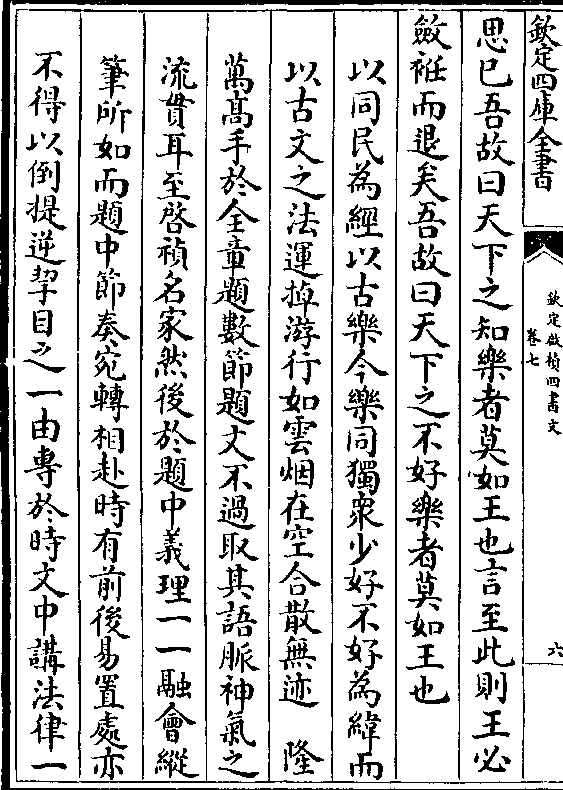 欽定四庫全書
欽定啟禎四書文
卷七
六
思已吾故曰天下之知樂者莫如王也言至此則王必
斂袵而退矣吾故曰天下之不好樂者莫如王也
以同民為經以古樂今樂同獨衆少好不好為緯而
以古文之法運掉游行如雲烟在空合散無迹　隆
萬髙手於全章題數節題文不過取其語脈神氣之
流貫耳至啓禎名家然後於題中義理一一融會縱
筆所如而題中節奏宛轉相赴時有前後易置處亦
不得以倒提逆挈目之一由專於時文中講法律一